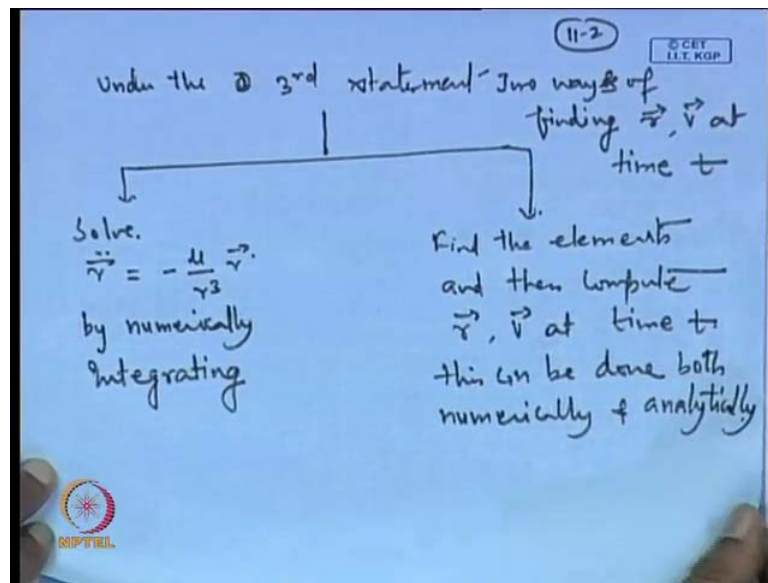 11-2
© CET
I.I.T. KGP
Under the 3rd statement - Two ways of
finding r⃗, v⃗ at
time t
Solve.
r⃗̈ = - μ/r³ r⃗.
by numerically
Integrating
Find the elements
and then compute
r⃗, v⃗ at time t
this can be done both
numerically & analytically
NPTEL